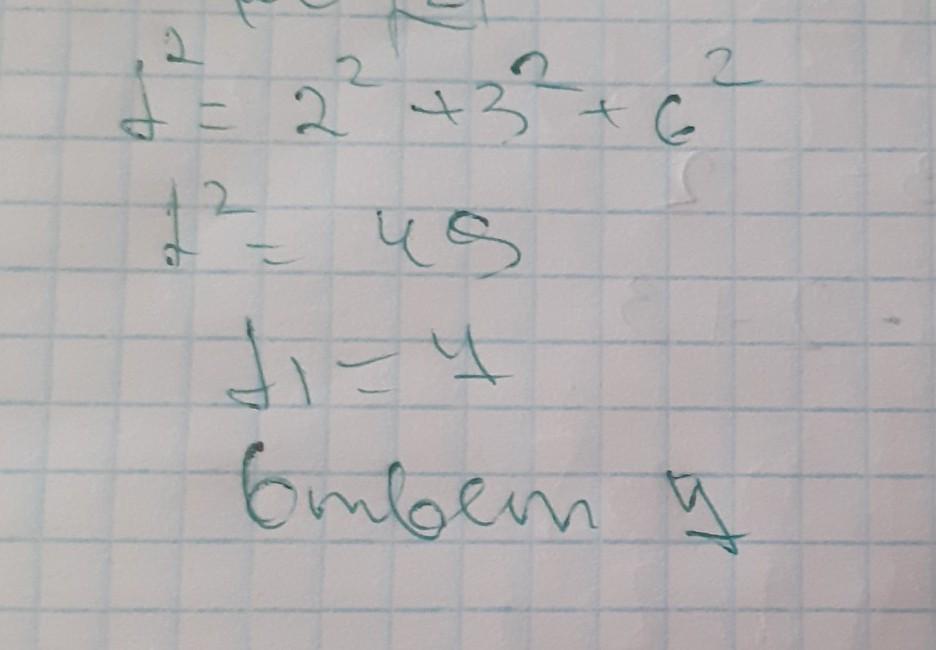 d² = 2² + 3² + 6²
d² = 49
d₁ = 7
Ответ 7